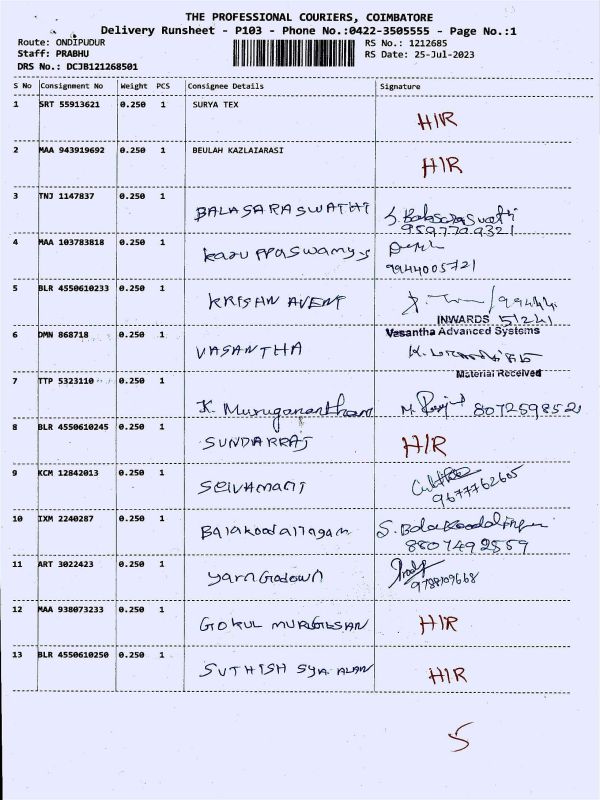 THE PROFESSIONAL COURIERS, COIMBATORE
Delivery Runsheet - P103 - Phone No.:0422-3505555 - Page No.:1
Route: ONDIPUDUR RS No.: 1212685
Staff: PRABHU RS Date: 25-Jul-2023
DRS No.: DCJB121268501
S No Consignment No Weight PCS Consignee Details Signature
1 SRT 55913621 0.250 1 SURYA TEX
H/R
2 MAA 943919692 0.250 1 BEULAH KAZLAIARASI
H/R
3 TNJ 1147837 0.250 1
BALASARASWATHI S. Balasaraswathi
9597709321
4 MAA 103783818 0.250 1
karuppaswamy s
9944005721
5 BLR 4550610233 0.250 1
KRISHN AVENI 99444
INWARDS 51241
6 DMN 868718 0.250 1 Vasantha Advanced Systems
VASANTHA
Material Received
7 TTP 5323110 0.250 1
K. Muruganantham 8072598521
8 BLR 4550610245 0.250 1
SUNDARRAJ H/R
9 KCM 12842013 0.250 1
Selvamani
9677762605
10 IXM 2240287 0.250 1
Balakoodalingam S.
8807492559
11 ART 3022423 0.250 1
yarn Godown
9788109668
12 MAA 938073233 0.250 1
GOKUL MURGESAN H/R
13 BLR 4550610250 0.250 1
SUTHISH SYA ALAN H/R
5